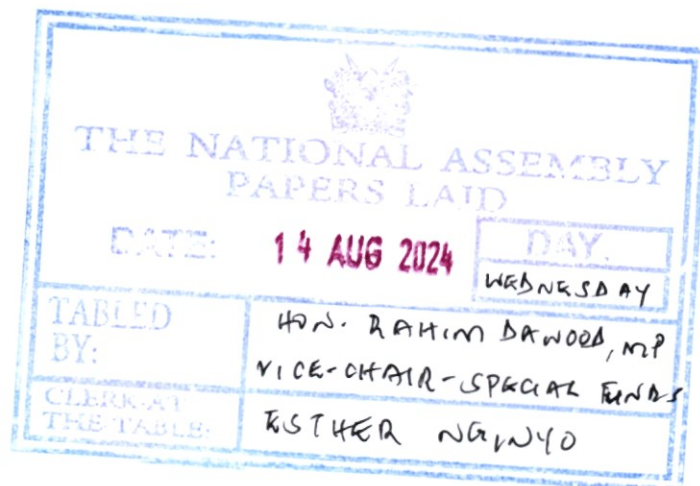 THE NATIONAL ASSEMBLY
PAPERS LAID
DATE: 14 AUG 2024 DAY.
WEDNESDAY
TABLED BY: HON. RAHIM DAWOOD, MP
VICE-CHAIR-SPECIAL FUNDS
CLERK-AT THE TABLE: ESTHER NGINYO